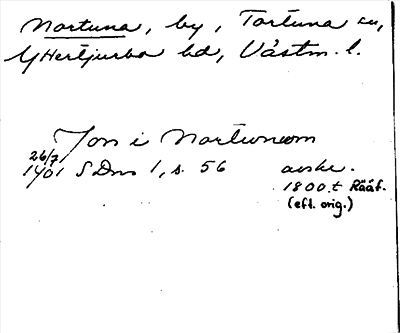 Nortuna, by, Tortuna sn,
YHertjurbo hd, Västm. l.
Jon i Nortunom
26/7
1401 SDns 1, s. 56 avskr.
1800.t Rääf.
(eft. orig.)